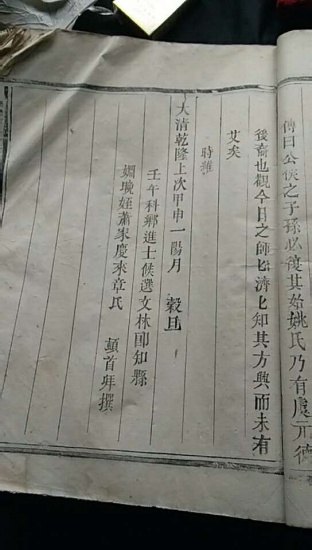 傳曰公侯之子孫必復其始姚氏乃有虞元德
後裔也觀今日之師匕濟匕知其方興而未有
艾矣
時維
大清乾隆上次甲申一陽月 穀旦
壬午科鄉進士候選文林郎知縣
姻晚姪蕭家慶來章氏 頓首拜撰